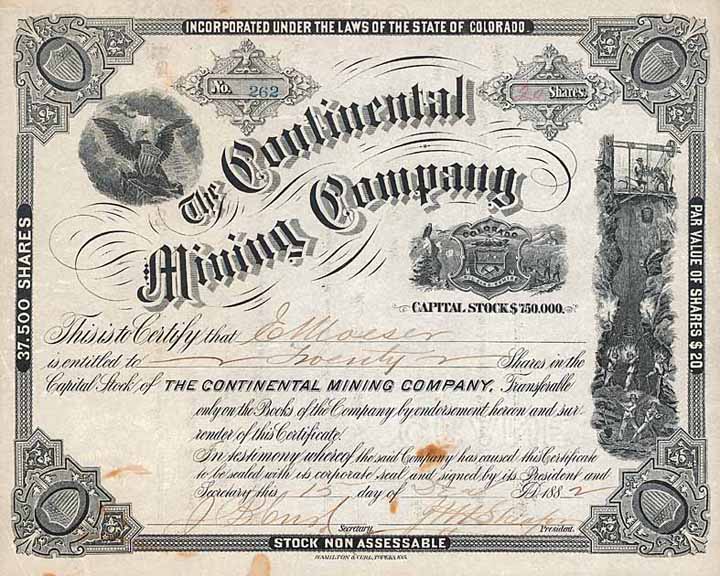 INCORPORATED UNDER THE LAWS OF THE STATE OF COLORADO.
No. 262
20 Shares.
The Continental
Mining Company
COLORADO
CAPITAL STOCK $750.000.
37.500 SHARES
PAR VALUE OF SHARES $20
This is to Certify that E Moeser
is entitled to Twenty Shares in the
Capital Stock of THE CONTINENTAL MINING COMPANY, Transferable
only on the Books of the Company by endorsement hereon and sur-
render of this Certificate.
In testimony whereof the said Company has caused this Certificate
to be sealed with its corporate seal and signed by its President and
Secretary this 12 day of A.D. 1882
Secretary. President.
STOCK NON ASSESSABLE
HAMILTON & CO'S., TOPEKA, KAS.